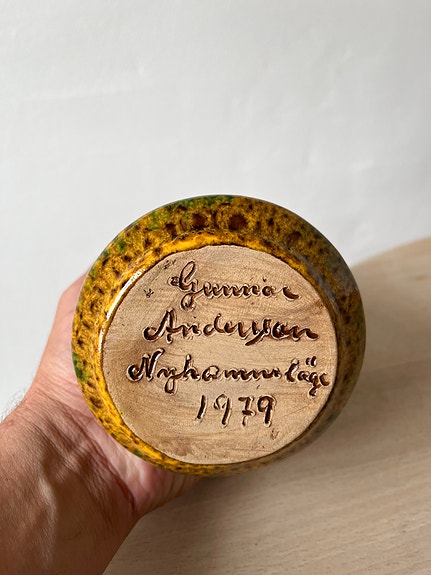 Gunnar
Andersson
Nyhamnsläge
1979